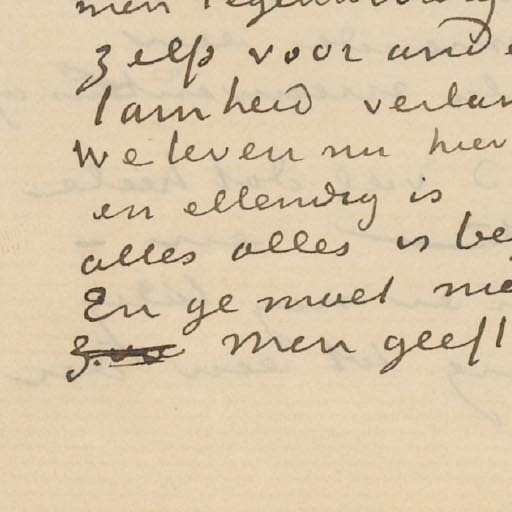 men
zelf voor
lamheid
We leven nu hier
en ellendig is
alles alles is
En ge moet
men geeft